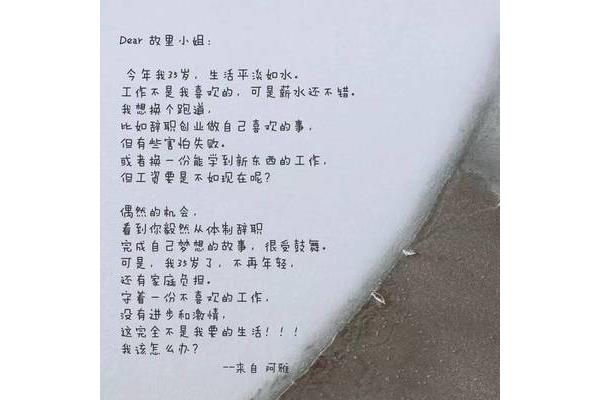 Dear 故里小姐：
今年我35岁，生活平淡如水。
工作不是我喜欢的，可是薪水还不错。
我想换个跑道，
比如辞职创业做自己喜欢的事，
但有些害怕失败。
或者换一份能学到新东西的工作，
但工资要是不如现在呢？
偶然的机会，
看到你毅然从体制辞职
完成自己梦想的故事，很受鼓舞。
可是，我35岁了，不再年轻，
还有家庭负担。
守着一份不喜欢的工作，
没有进步和激情，
这完全不是我要的生活！！！
我该怎么办？
--来自 阿雅